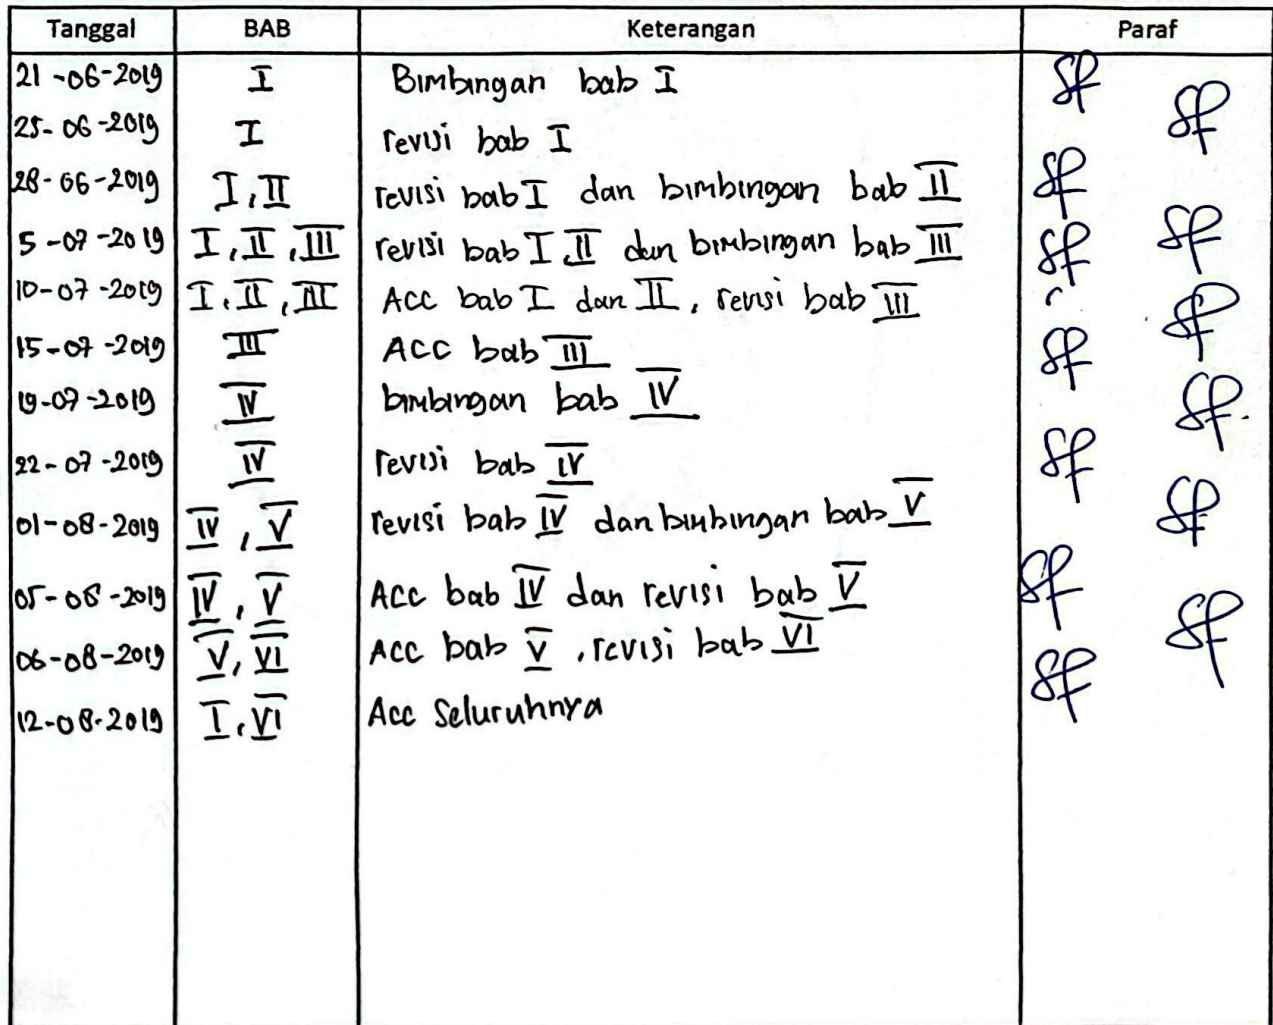 Tanggal BAB Keterangan Paraf
21-06-2019 I Bimbingan bab I
25-06-2019 I revisi bab I
28-06-2019 I, II revisi bab I dan bimbingan bab II
5-07-2019 I, II, III revisi bab I, II dan bimbingan bab III
10-07-2019 I, II, III Acc bab I dan II, revisi bab III
15-07-2019 III Acc bab III
19-07-2019 IV bimbingan bab IV
22-07-2019 IV revisi bab IV
01-08-2019 IV, V revisi bab IV dan bimbingan bab V
05-08-2019 IV, V Acc bab IV dan revisi bab V
06-08-2019 V, VI Acc bab V, revisi bab VI
12-08-2019 I, VI Acc Seluruhnya